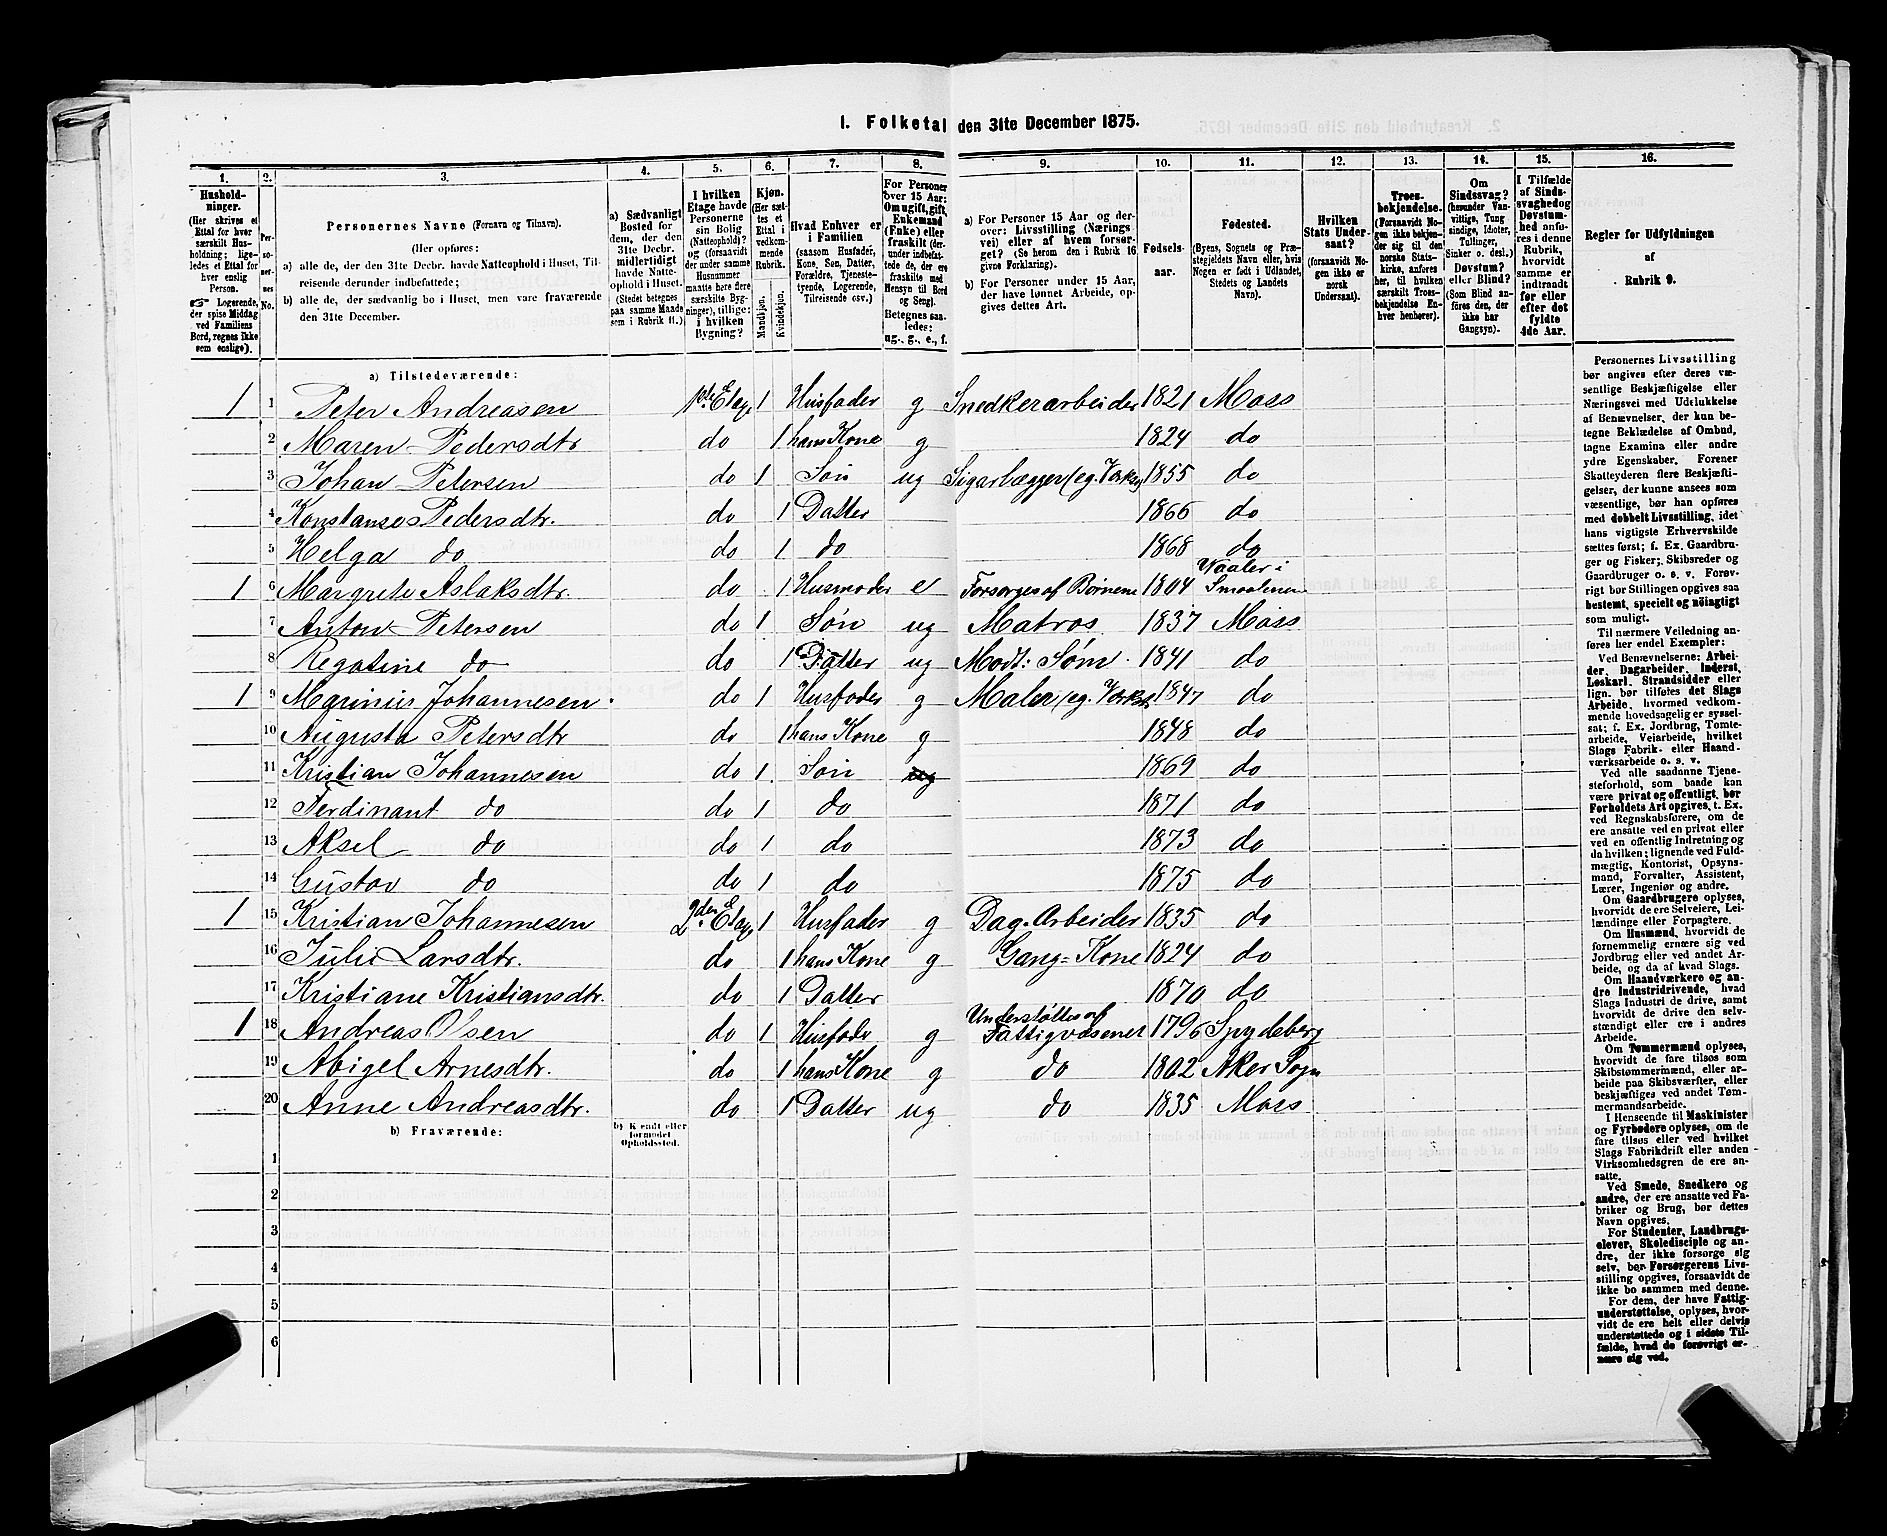 I. Folketal den 31te December 1875.
1. 2. 3. 4. 5. 6. 7. 8. 9. 10. 11. 12. 13. 14. 15. 16.
Husholdninger. (Her skrives et Ettal for hver særskilt Husholdning; ligeledes et Ettal for hver enslig Person. ☞ Logerende, der spise Middag ved Familiens Bord, regnes ikke som enslige).
Personernes No.
Personernes Navne (Fornavn og Tilnavn).
(Her opføres:
a) alle de, der den 31te Decbr. havde Natteophold i Huset, Tilreisende derunder indbefattede;
b) alle de, der sædvanlig bo i Huset, men vare fraværende den 31te December.
a) Sædvanligt Bosted for dem, der den 31te Decbr. midlertidigt havde Natteophold i Huset. (Stedet betegnes paa samme Maade som i Rubrik 11.)
I hvilken Etage havde Personerne sin Bolig (Natteophold)? og (forsaavidt der under samme Husnummer maatte høre flere særskilte Bygninger), tillige: i hvilken Bygning?
Kjøn. (Her sættes et Ettal i vedkommende Rubrik. Mandkjøn. Kvindekjøn.
Hvad Enhver er i Familien (saasom Husfader, Kone, Søn, Datter, Forældre, Tjenestetyende, Logerende, Tilreisende osv.)
For Personer over 15 Aar: Om ugift, gift, Enkemand (Enke) eller fraskilt (derunder indbefattede de, der ere fraskilte med Hensyn til Bord og Seng). Betegnes saaledes: ug., g., e., f.
a) For Personer 15 Aar og derover: Livsstilling (Næringsvei) eller af hvem forsørget? (Se herom den i Rubrik 16 givne Forklaring).
b) For Personer under 15 Aar, der have lønnet Arbeide, opgives dettes Art.
Fødselsaar.
Fødested. (Byens, Sognets og Præstegjeldets Navn eller, hvis Nogen er født i Udlandet, Stedets og Landets Navn).
Hvilken Stats Undersaat? (forsaavidt Nogen ikke er norsk Undersaat).
Troesbekjendelse. (Forsaavidt Nogen ikke bekjender sig til den norske Statskirke, anføres her, til hvilken særskilt Troesbekjendelse Enhver henhører).
Om Sindssvag? (herunder Vanvittige, Tung sindige, Idioter, Tullinger, Sinker o. desl.) Døvstum? eller Blind? (Som Blind anføres den, der ikke har Gangsyn).
I Tilfælde af Sindssvaghed og Døvstumhed anføres i denne Rubrik, hvorvidt samme er indtraadt før eller efter det fyldte 4de Aar.
Regler for Udfyldningen af Rubrik 9.
a) Tilstedeværende:
1 1 Peter Andreasen 1ste Etage 1 Husfader g Snedkerarbeider 1821 Moss
2 Maren Pedersdtr do 1 hans Kone g 1824 do
3 Johan Petersen do 1 Søn ug Sigarlægger (eg. Værksg 1855 do
4 Konstanse Pedersdtr. do 1 Datter 1866 do
5 Helga do do 1 do 1868 do
1 6 Margrete Aslaksdtr. do 1 Husmoder e Forsørges af Børnene 1804 Vaaler i Smaalenene
7 Anton Petersen do 1 Søn ug Matros 1837 Moss
8 Regatine do do 1 Datter ug Modt: Søm. 1841 do
1 9 Marinius Johannesen do 1 Husfader g Maler (eg. Værks. 1847 do
10 Augusta Petersdtr do 1 hans Kone g 1848 do
11 Kristian Johannesen do 1 Søn ug 1869 do
12 Ferdinant do do 1 do 1871 do
13 Aksel do do 1 do 1873 do
14 Gustav do do 1 do 1875 do
1 15 Kristian Johannesen 2den Etage 1 Husfader g Dag. Arbeider 1835 do
16 Julie Larsdtr. do 1 hans Kone g Gang=Kone 1824 do
17 Kristiane Kristiansdtr. do 1 Datter 1870 do
1 18 Andreas Olsen do 1 Husfader g Understøttes af Fattigvæsenet 1796 Spydeberg
19 Abigel Arnesdtr. do 1 hans Kone g do 1802 Aker Sogn
20 Anne Andreasdtr. do 1 Datter ug do 1835 Moss
b) Fraværende:
b) Kjendt eller formodet Opholdssted.
1
2
3
4
5
6
Personernes Livsstilling
bør angives efter deres væ-
sentlige Beskjæftigelse eller
Næringsvei med Udelukkelse
af Benævnelser, der kun be-
tegne Beklædelse af Ombud,
tagne Examina eller andre
ydre Egenskaber. Forener
Skatteyderen flere Beskjæfti-
gelser, der kunne ansees som
væsentlige, bør han opføres
med dobbelt Livsstilling, idet
hans vigtigste Erhvervskilde
sættes først; f. Ex. Gaardbru-
ger og Fisker; Skibsreder og
Gaardbruger o. s. v. Forøv-
rigt bør Stillingen opgives saa
bestemt, specielt og nöiagtigt
som muligt.
Til nærmere Veiledning an-
føres her endel Exempler:
Ved Benævnelserne: Arbei-
der, Dagarbeider, Inderst,
Løskarl, Strandsidder eller
lign. bør tilføies det Slags
Arbeide, hvormed vedkom-
mende hovedsagelig er syssel-
sat; f. Ex. Jordbrug, Tomte-
arbeide, Veiarbeide, hvilket
Slags Fabrik- eller Haand-
værksarbeide o. s. v.
Ved alle saadanne Tjene-
steforhold, som baade kan
være privat og offentligt, bør
Forholdets Art opgives, t. Ex.
ved Regnskabsførere, om de
ere ansatte ved en privat eller
ved en offentlig Indretning og
da hvilken; lignende ved Fuld-
mægtig, Kontorist, Opsyns-
mand, Forvalter, Assistent,
Lærer, Ingeniør og andre.
Om Gaardbrugere oplyses,
hvorvidt de ere Selveiere, Lei-
lændinge eller Forpagtere.
Om Husmænd, hvorvidt de
fornemmelig ernære sig ved
Jordbrug eller ved andet Ar-
beide, og da af hvad Slags.
Om Haandværkere og an-
dre Industridrivende, hvad
Slags Industri de drive, samt
hvorvidt de drive den selv-
stændigt eller ere i andres
Arbeide.
Om Tømmermænd oplyses,
hvorvidt de fare tilsøs som
Skibstømmermænd, eller ar-
beide paa Skibsværfter, eller
beskjæftiges ved andet Tøm-
mermandsarbeide.
I Henseende til Maskinister
og Fyrbødere oplyses, om de
fare tilsøs eller ved hvilket
Slags Fabrikdrift eller anden
Virksomhedsgren de ere an-
satte.
Ved Smede, Snedkere og
andre, der ere ansatte ved Fa-
briker og Brug, bør dettes
Navn opgives.
For Studenter, Landbrugs-
elever, Skoledisciple og an-
dre, der ikke forsørge sig
selv, bør Forsørgerens Livs-
stilling opgives, forsaavidt de
ikke bo sammen med denne.
For dem, der have Fattig-
understøttelse, oplyses, hvor-
vidt de ere helt eller delvis
understøttede og i sidste Til-
fælde, hvad de forøvrigt er-
nære sig ved.